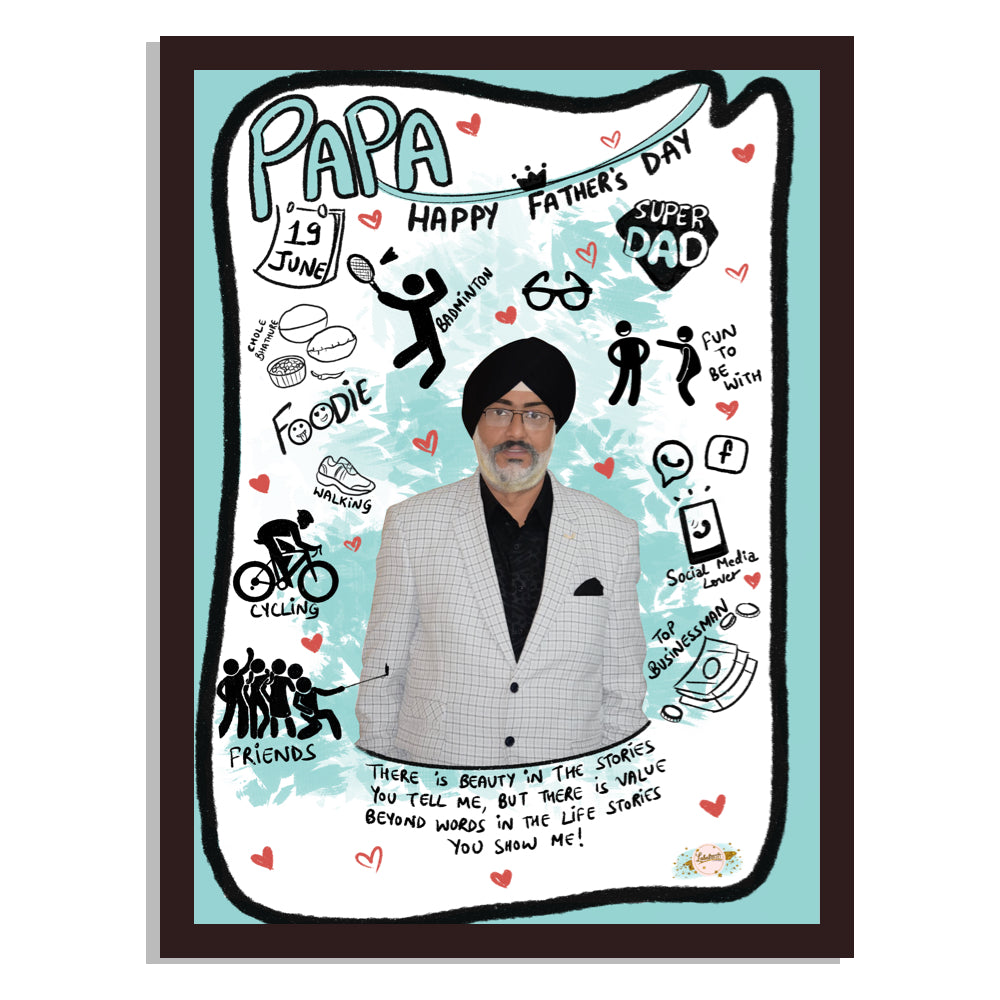 PAPA
HAPPY FATHER'S DAY
19
JUNE
SUPER
DAD
BADMINTON
CHOLE
BHATHURE
FUN
TO
BE
WITH
FOODIE
WALKING
f
CYCLING
Social Media
Lover
TOP
BUSINESSMAN
FRIENDS
THERE is BEAUTY iN THE STORiES
YOU TELL ME, BUT THERE iS VALUE
BEYOND WORDS iN THE LiFE STORiES
YOU SHOW ME!